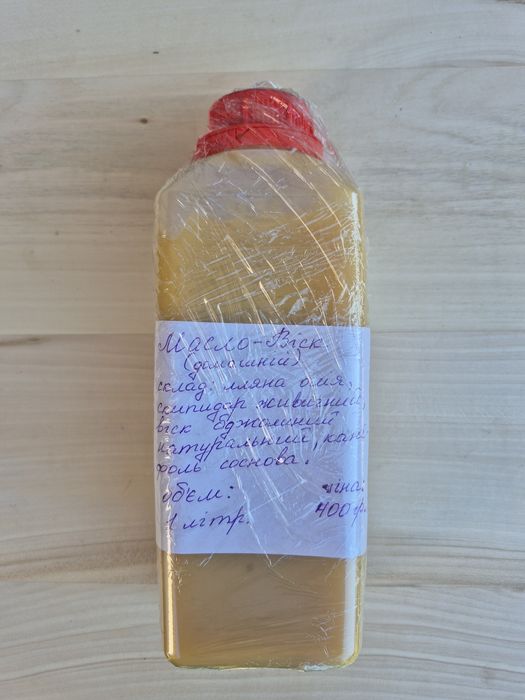 Масло-Віск
(домашній)
склад: лляна олія,
скипидар живичний,
віск бджолиний
натуральний, кані-
фоль соснова.
об'єм: ціна:
1 літр. 400гр.